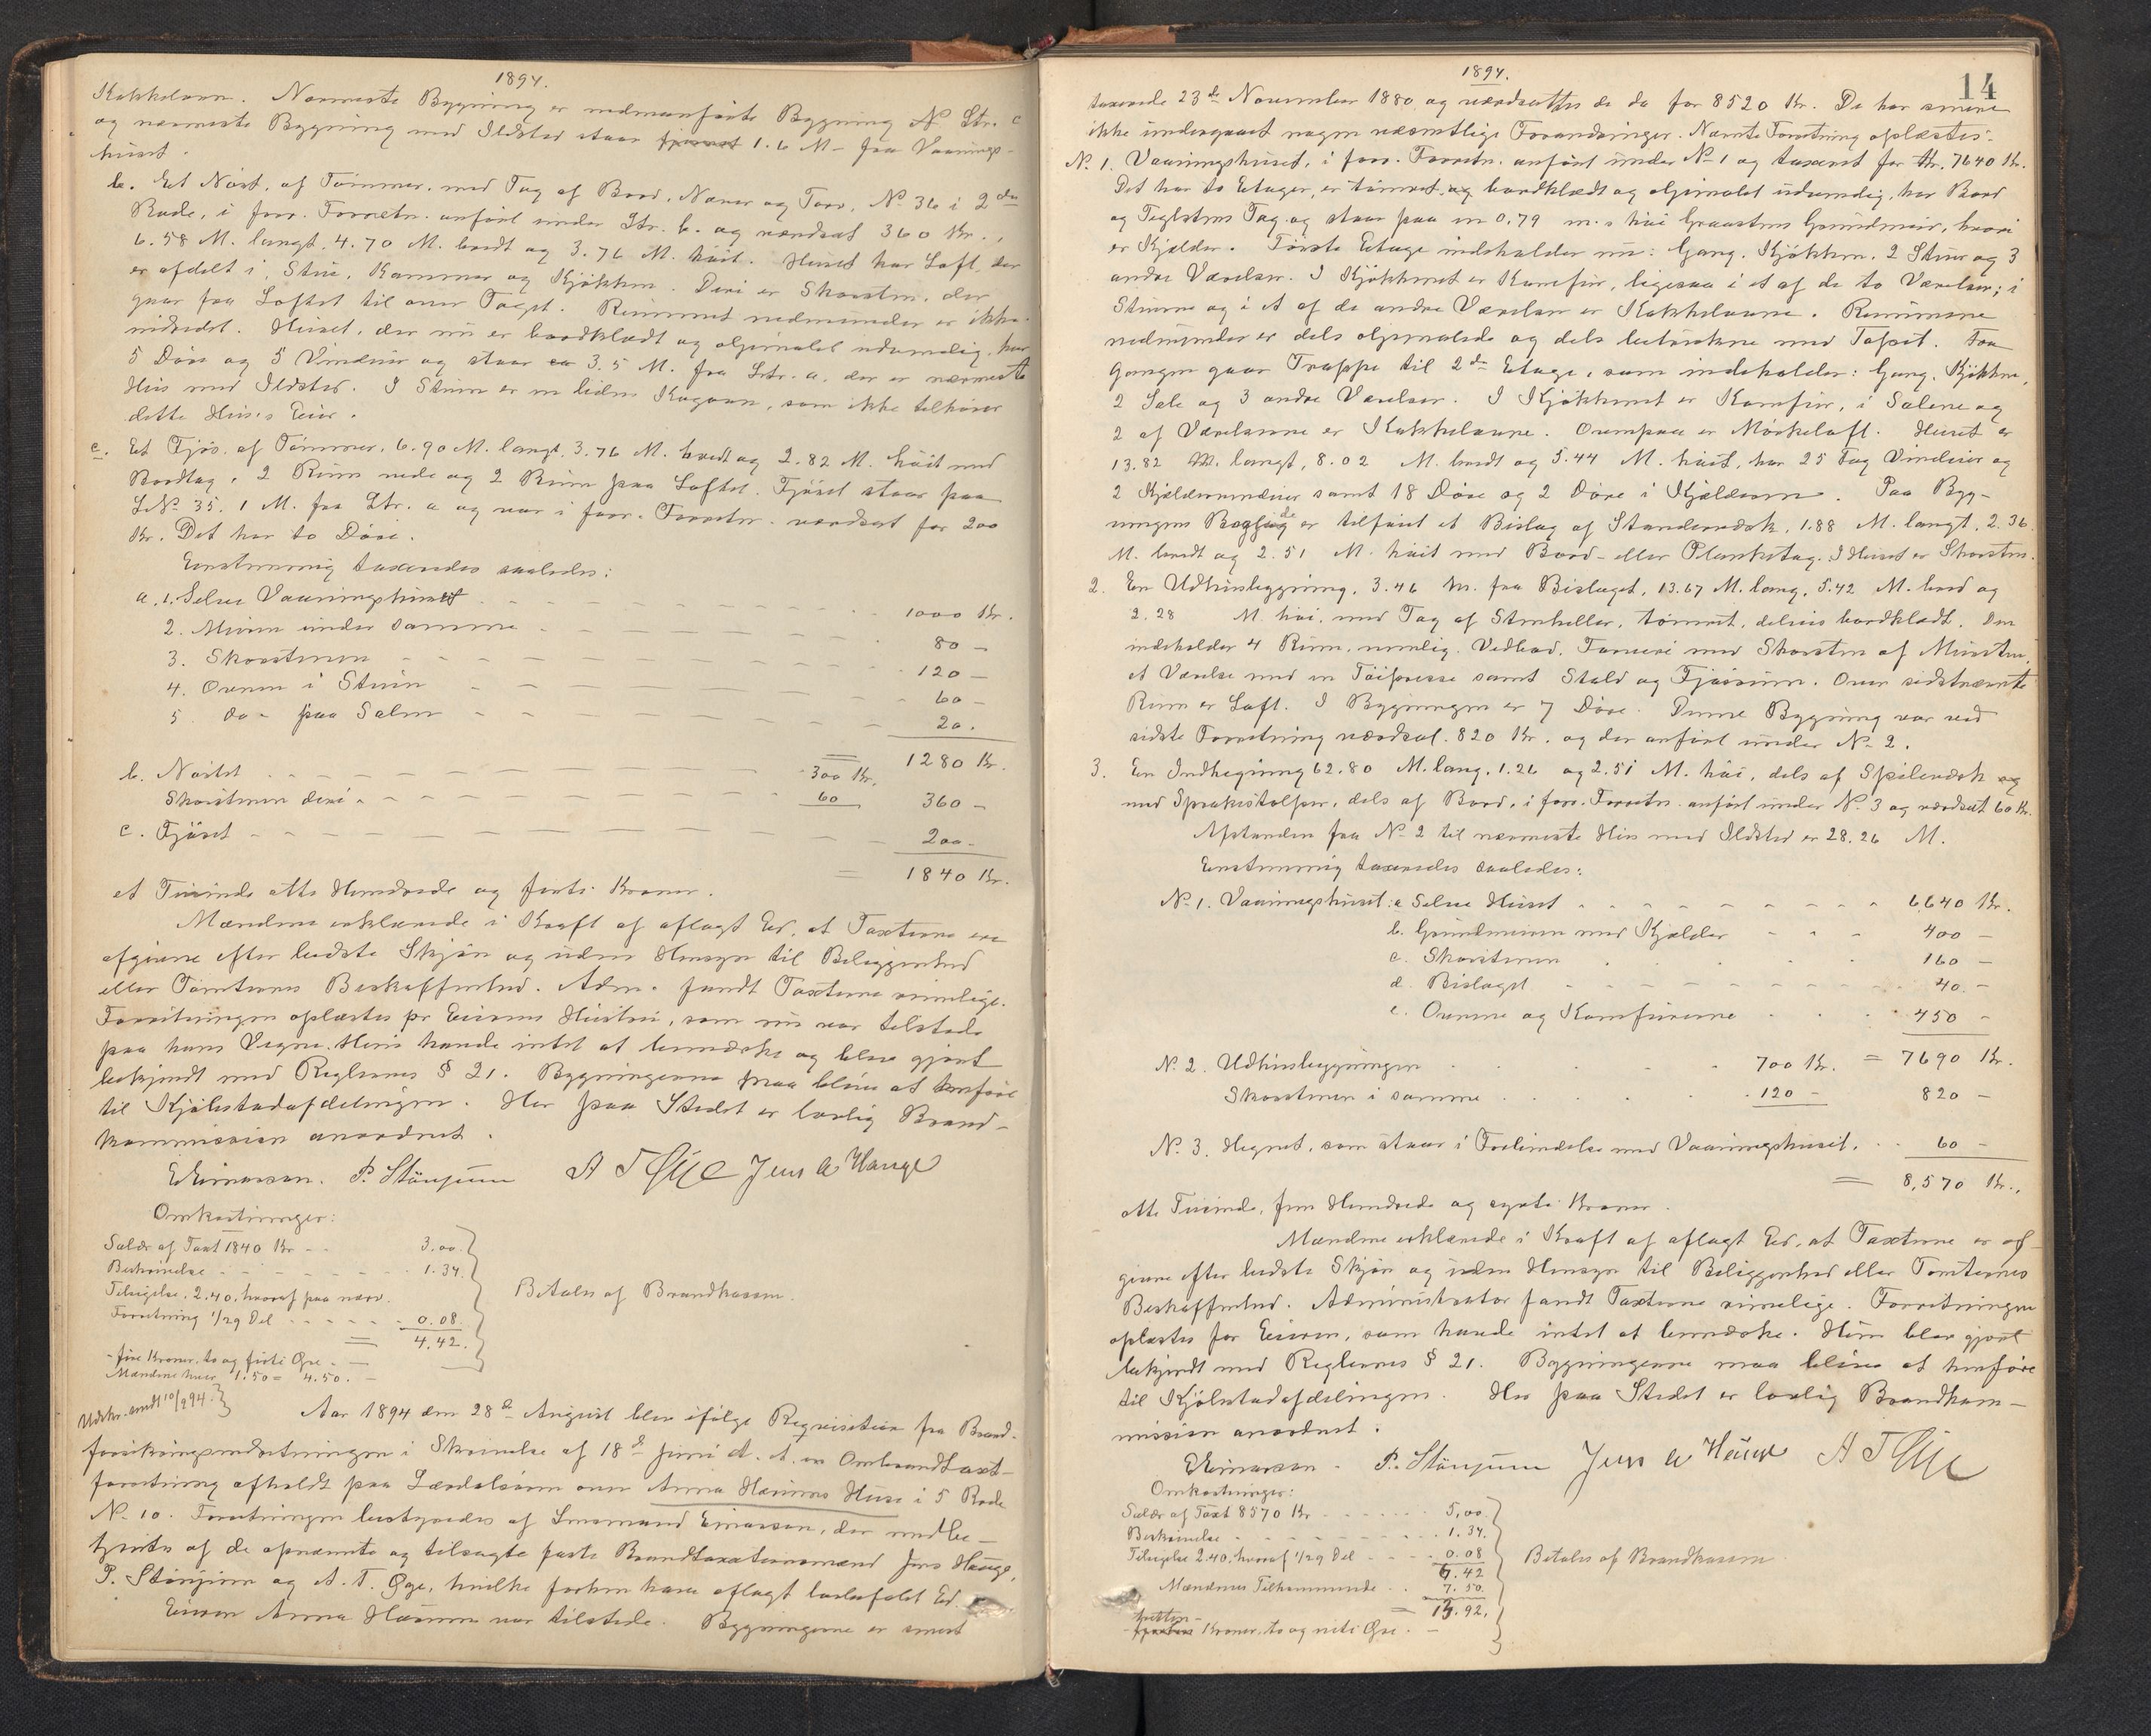 1894.
Kakkelovn. Nærmeste Bygning er nedenanførte Bygning No Ltr. c
og nærmeste Bygning med Ildsted staar 1.6 M. fra Vaanings-
huset.
b. Et Nöst, af Tömmer, med Tag af Bord, Næver og Torv, No 36 i 2den
Rode, i forr. Forretn. anført under Ltr. b. og værdsat 360 Kr.,
6.58 M. langt, 4.70 M. bredt og 3.76 M. höit. Huset har Loft, der
er afdelt i Stue, Kammer og Kjökken. Deri er Skorsten, der
gaar fra Loftet til over Taget. Rummet nedenunder er ikke
indredet. Huset, der nu er bordklædt og oljemalet udvendig, har
5 Döre og 5 Vinduer og staar 3.5 M. fra Ltr. a, der er nærmeste
Hus med Ildsted. I Stuen er en liden Kogovn, som ikke tilhører
dette Huses Eier.
c. Et Fjös, af Tömmer, 6.90 M. langt, 3.76 M. bredt og 2.82 M. höit med
Bordtag, 2 Rum nede og 2 Rum paa Loftet. Fjöset staar paa
LNo 35, 1 M. fra Ltr. a og var i forr. Forretn. værdsat for 200
Kr. Det har to Döre.
Eenstemmig taxeredes saaledes:
a. 1. Selve Vaaningshuset 1000 Kr.
2. Muren under samme 80 -
3. Skorstenen 120 -
4. Ovnen i Stuen 60 -
5. do - paa Salen 20.
= 1280 Kr.
b. Nöstet 300 Kr.
Skorstenen deri 60 360 -
c. Fjöset 200.
= 1840 Kr.
et Tusinde otte Hundrede og firti Kroner.
Mændene erklærede i Kraft af aflagt Ed, at Taxterne ere
afgivne efter bedste Skjön og uden Hensyn til Beliggenhed
eller Tomternes Beskaffenhed. Adm. fandt Taxterne rimelige.
Forretningen oplæstes pr Eierens Hustru, som nu var tilstede
paa hans Vegne. Hun havde intet at bemærke og blev gjort
bekjendt med Reglernes § 21. Bygningerne maa blive at henføre
til Kjöbstadafdelingen. Her paa Stedet er lovlig Brand-
kommission anordnet.
E Einarsen. P. Stönjum A T Øye Jens A Hauge
Omkostninger:
Salær af Taxt 1840 Kr - - 3.00.
Beskrivelse 1.34.
Tilsigelse. 2.40, hvoraf paa nærv.
Forretning 1/29 Del 0.08.
= 4.42.
- fire Kroner, to og firti Øre. -
Mændene hver 1.50 = 4.50. -
Betales af Brandkassen.
Udskr. sendt 10/9 94.
Aar 1894 den 28de August blev ifølge Requisition fra Brand-
forsikringsindretningen i Skrivelse af 18de Juni d. A. en Ombrandtaxt-
forretning afholdt paa Lærdalsören over Anna Hæreims Huse i 5 Rode
No 10. Forretningen bestyredes af Lensmand Einarsen, der medbe-
tjentes af de opnævnte og tilsagte faste Brandtaxationsmænd Jens Hauge,
P. Stönjum og A. T. Øye, hvilke forhen have aflagt lovbefalet Ed.
Eieren Anna Hæreim var tilstede. Bygningerne er senest
1894.
14
taxerede 23de November 1880 og værdsattes de da for 8520 Kr. De har senere
ikke undergaaet nogen væsentlige Forandringer. Nævnte Forretning oplæstes:
No. 1. Vaaningshuset, i forr. Forretn. anført under No 1 og taxeret for Kr. 7640 Kr.
Det har to Etager, er tømret, og bordklædt og oljemalet udvendig, har Bord
og Teglstens Tag og staar paa en 0.79 m. höi Graastens Grundmur, hvori
er Kjælder. Første Etage indeholder nu: Gang, Kjökken, 2 Stuer og 3
andre Værelser. I Kjökkenet er Komfur, ligesaa i et af de to Værelser; i
Stuerne og i et af de andre Værelser er Kakkelovne. Rummene
nedenunder er dels oljemalede og dels betrukne med Tapet. Fra
Gangen gaar Trappe til 2den Etage, som indeholder: Gang, Kjökken,
2 Sale og 3 andre Værelser. I Kjökkenet er Komfur, i Salene og
2 af Værelserne er Kakkelovne. Ovenpaa er Mörkeloft. Huset er
13.82 M. langt, 8.02 M. bredt og 5.44 M. höit, har 25 Fag Vinduer og
2 Kjælderвinduer samt 18 Döre og 2 Döre i Kjælderen. Paa Byg-
ningens Bagside er tilføiet et Bislag af Standerværk, 1.88 M. langt, 2.36
M. bredt og 2.51 M. höit med Bord- eller Planketag. I Huset er Skorsten.
2. En Udhusbygning, 3.46 M. fra Bislaget, 13.67 M. lang, 5.42 M. bred og
2.28 M. höi, med Tag af Stenheller, tömret, delvis bordklædt. Den
indeholder 4 Rum, nemlig Vedbod, Farveri med Skorsten af Mursten,
et Værelse med en Töipresse samt Stald og Fjösrum. Over sidstnævnte
Rum er Loft. I Bygningen er 7 Döre. Denne Bygning var ved
sidste Forretning værdsat 820 Kr. og der anført under No 2.
3. En Indhegning 62.80 M. lang, 1.26 og 2.51 M. höi, dels af Spileværk
med stolper, dels af Bord, i forr. Forretn. anført under No. 3 og værdsat 60 Kr.
Afstanden fra No 2 til nærmeste Hus med Ildsted er 28.26 M.
Eenstemmig taxeredes saaledes:
No 1. Vaaningshuset: a Selve Huset 6640 Kr.
b. Grundmuren med Kjælder 400 -
c. Skorstenen 160 -
d. Bislaget 40. -
e. Ovnene og Komfurerne 450 -
= 7690 Kr.
No 2. Udhusbygningen 700 Kr.
Skorstenen i samme 120 - 820 -
No 3. Hegnet, som staar i Forbindelse med Vaaningshuset. 60 -
= 8,570 Kr.,
otte Tusinde, fem Hundrede og sytti Kroner.
Mændene erklærede i Kraft af aflagt Ed, at Taxterne er af-
givne efter bedste Skjön og uden Hensyn til Beliggenhed eller Tomternes
Beskaffenhed. Administrator fandt Taxterne rimelige. Forretningen
oplæstes for Eieren, som havde intet at bemærke. Hun blev gjort
bekjendt med Reglernes § 21. Bygningerne maa blive at henføre
til Kjöbstadafdelingen. Her paa Stedet er lovlig Brandkom-
mission anordnet.
E Einarsen - P. Stönjum Jens A Hauge A T Øye
Omkostninger:
Salær af Taxt 8570 Kr 5,00.
Beskrivelse 1.34.
Tilsigelse 2.40, hvoraf 1/29 Del 0.08
6.42
Mændenes Tilkommende 7.50.
= 13.92.
tretten
Kroner, to og niti Øre. -
Betales af Brandkassen